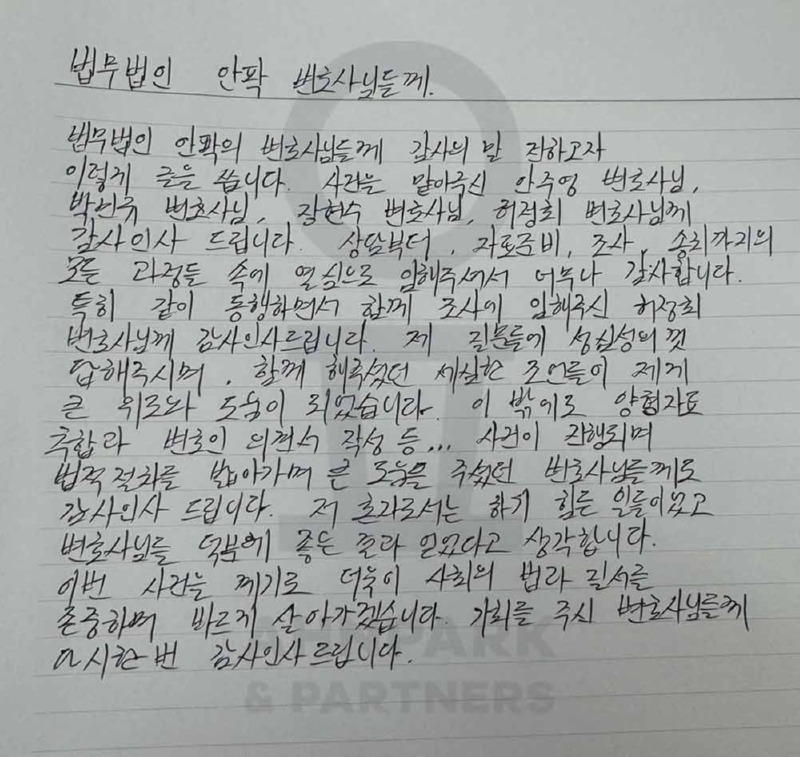 법무법인 안팍 변호사님들께.
법무법인 안팍의 변호사님들께 감사의 말 전하고자
이렇게 글을 씁니다. 사건을 맡아주신 안주영 변호사님,
박민규 변호사님, 장현수 변호사님, 허정회 변호사님께
감사인사 드립니다. 상담부터, 자료준비, 조사, 송치까지의
모든 과정들 속에 열심으로 임해주셔서 너무나 감사합니다.
특히 같이 동행하면서 함께 조사에 임해주신 허정회
변호사님께 감사인사드립니다. 제 질문들에 성심성의껏
답해주시며, 함께 해주셨던 세심한 조언들이 제게
큰 위로와 도움이 되었습니다. 이 밖에도 양형자료
취합과 변호인 의견서 작성 등... 사건이 진행되며
법적절차를 밟아가며 큰 도움을 주셨던 변호사님들께도
감사인사 드립니다. 저 혼자로서는 하기 힘든 일들이었고
변호사님들 덕분에 좋은 결과 있었다고 생각합니다.
이번 사건을 계기로 더욱이 사회의 법과 질서를
존중하며 바르게 살아가겠습니다. 기회를 주신 변호사님들께
다시한번 감사인사드립니다.
AHNPARK
& PARTNERS